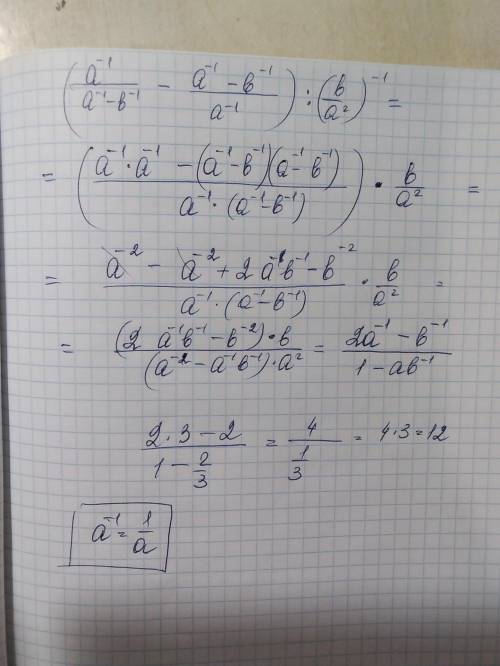 (a⁻¹/(a⁻¹-b⁻¹) - (a⁻¹-b⁻¹)/a⁻¹) : (b/a²)⁻¹ =
= ((a⁻¹·a⁻¹ - (a⁻¹-b⁻¹)(a⁻¹-b⁻¹))/(a⁻¹·(a⁻¹-b⁻¹))) · b/a² =
= (a⁻² - a⁻² + 2a⁻¹b⁻¹ - b⁻²)/(a⁻¹·(a⁻¹-b⁻¹)) · b/a² =
= ((2 a⁻¹b⁻¹ - b⁻²)·b)/((a⁻² - a⁻¹b⁻¹)·a²) = (2a⁻¹ - b⁻¹)/(1 - ab⁻¹)
(2·3 - 2)/(1 - 2/3) = 4/(1/3) = 4·3 = 12
a⁻¹ = 1/a